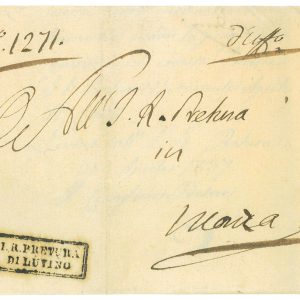 № 1271.
All' I. R. Pretura
in
Monza
I. R. PRETURA
DI LUVINO